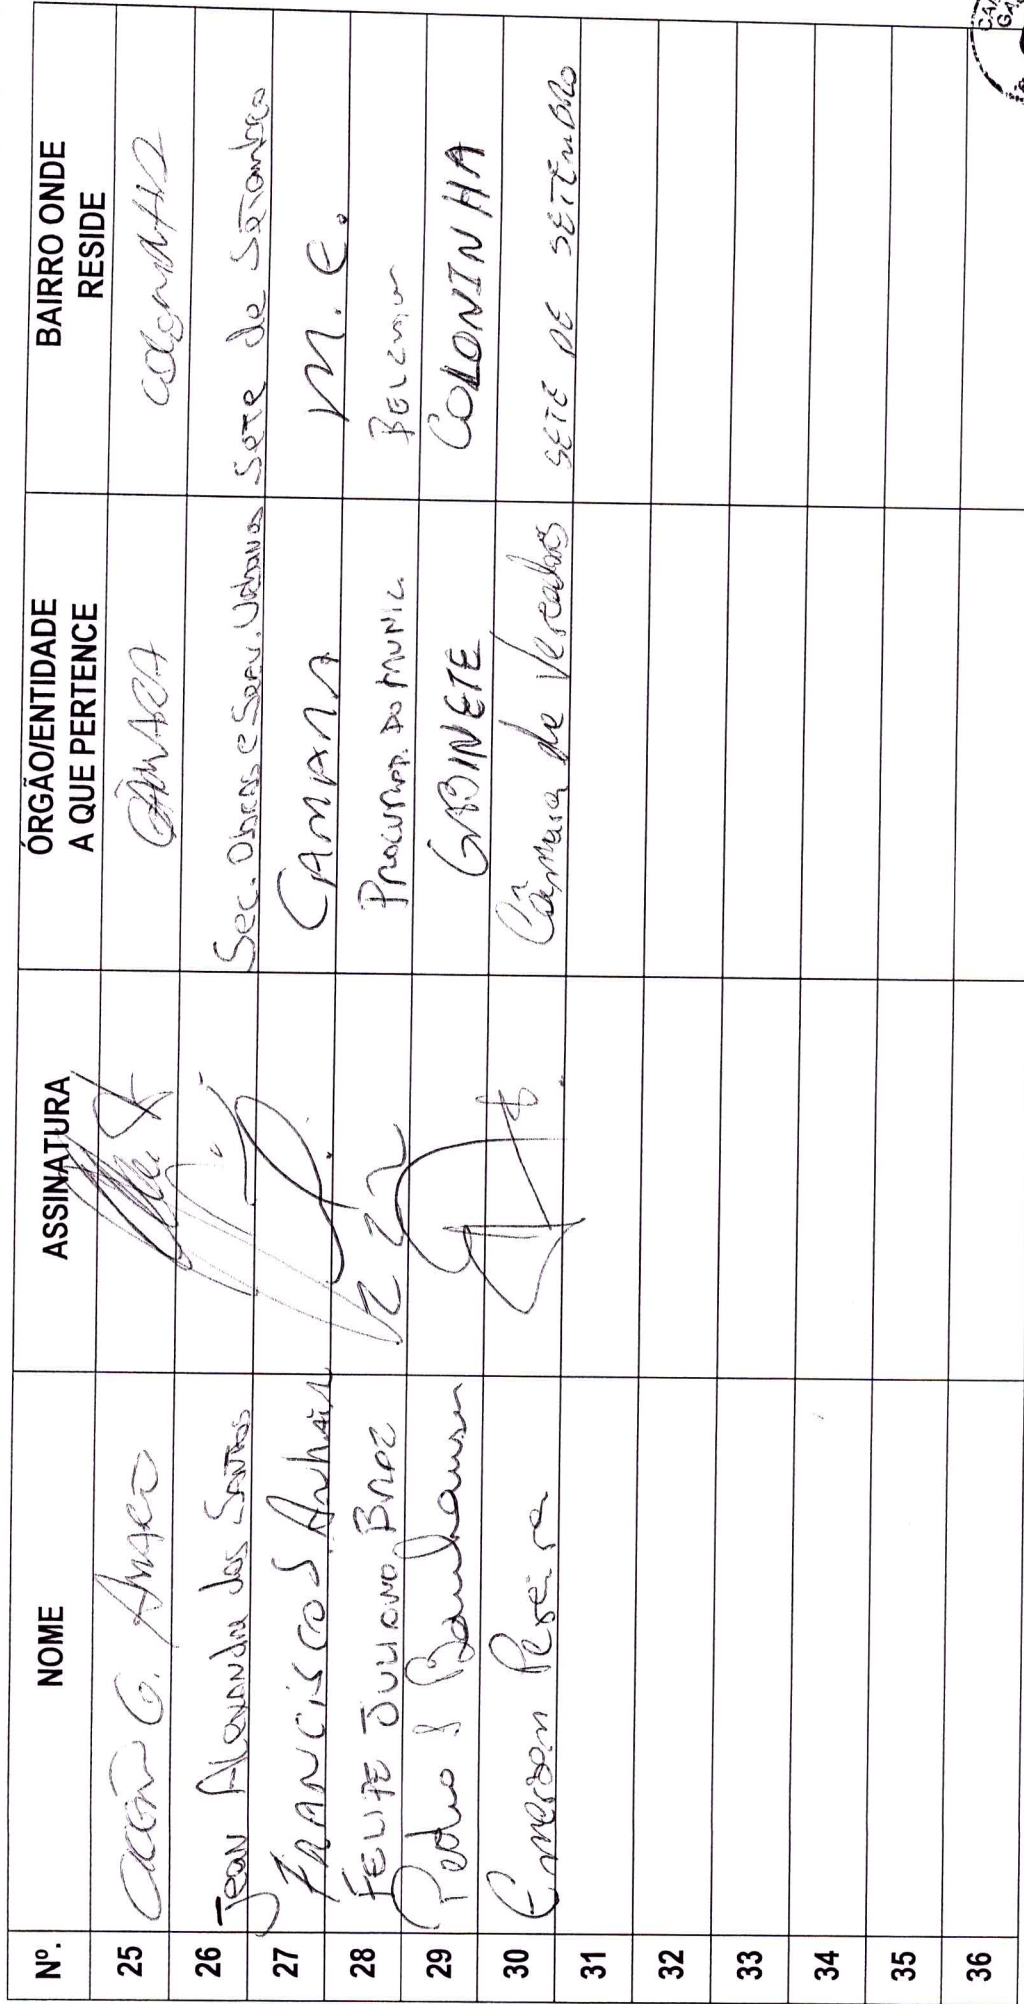 Nº. NOME ASSINATURA ÓRGÃO/ENTIDADE A QUE PERTENCE BAIRRO ONDE RESIDE
25 G. Amaro CÂMARA
26 Jean Alexandre dos Santos Sec. Obras e Serv. Urbanos Sete de Setembro
27 FRANCISCO S CAMARA M. C.
28 FELIPE JULIANO BRAZ PROCURAD. DO MUNIC.
29 Pedro Bornhausen GABINETE COLONINHA
30 Emerson Pereira Câmara de Vereadores SETE DE SETEMBRO
31
32
33
34
35
36